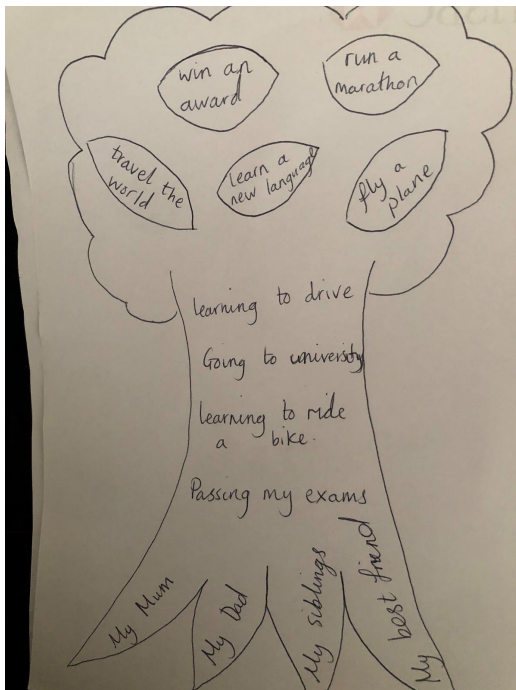 win an
award
run a
marathon
travel the
world
learn a
new language
fly a
plane
learning to drive
Going to university
learning to ride
a bike.
Passing my exams
My Mum
My Dad
My siblings
My best friend